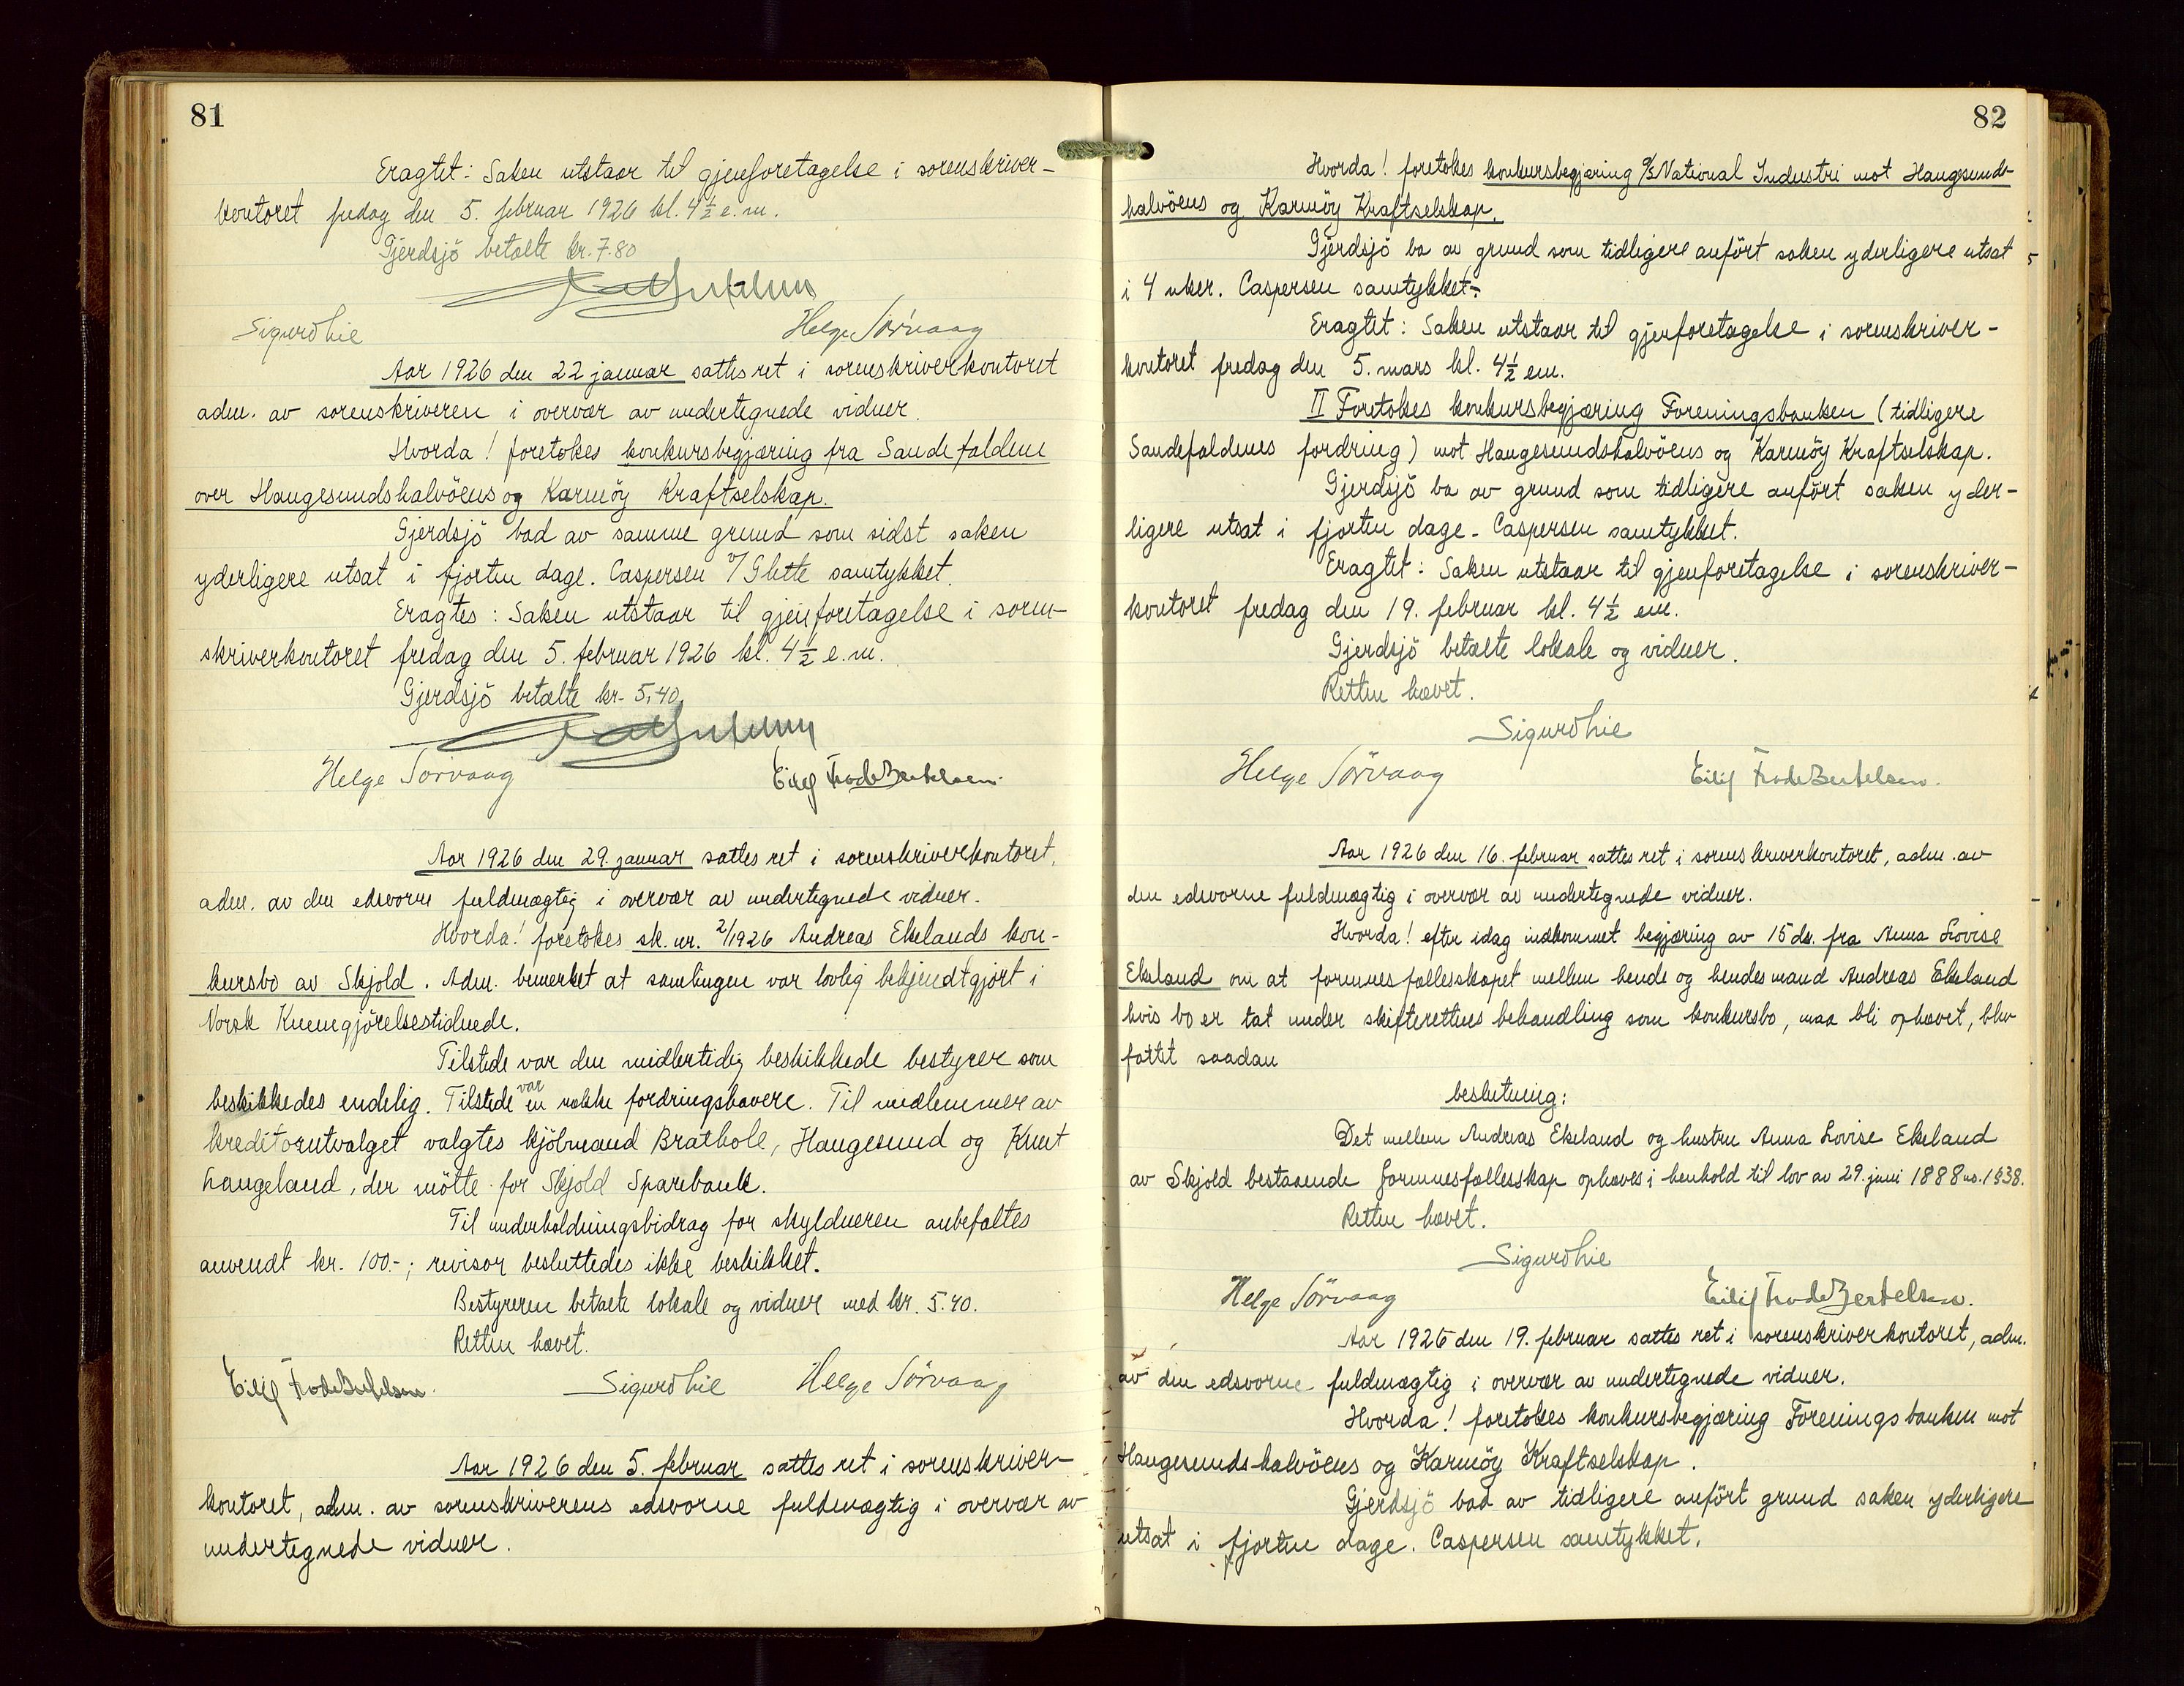 81
Eragtet: Saken utstaar til gjenforetagelse i sorenskriver-
kontoret fredag den 5. februar 1926 kl. 4½ e.m.
Gjerdsjö betalte kr. 7.80
Sigurd Lie Helge Sörvaag
Aar 1926 den 22 januar sattes ret i sorenskriverkontoret
adm. av sorenskriveren i overvær av undertegnede vidner.
Hvorda! foretokes konkursbegjæring fra Sandefaldene
over Haugesundshalvöens og Karmöy Kraftselskap.
Gjerdsjö bad av samme grund som sidst saken
yderligere utsat i fjorten dage. Caspersen v/ Glette samtykket.
Eragtes: Saken utstaar til gjenforetagelse i soren-
skriverkontoret fredag den 5. februar 1926 kl. 4½ e.m.
Gjerdsjö betalte kr. 5,40.
Helge Sörvaag Eilif Frode Bertelsen.
Aar 1926 den 29. januar sattes ret i sorenskriverkontoret,
adm. av den edsvorne fuldmægtig i overvær av undertegnede vidner.
Hvorda! foretokes sk. nr. 2/1926 Andreas Ekelands kon-
kursbo av Skjold. Adm. bemerket at samlingen var lovlig bekjendtgjort i
Norsk Kunngjörelsestidnede.
Tilstede var den midlertidig beskikkede bestyrer som
beskikkedes endelig. Tilstede var en række fordringshavere. Til medlemmer av
kreditorutvalget valgtes kjöbmand Brathole, Haugesund og Knut
Langeland, der mötte for Skjold Sparebank.
Til underholdningsbidrag for skyldneren anbefaltes
anvendt kr. 100.-; revisor besluttedes ikke beskikket.
Bestyreren betalte lokale og vidner med kr. 5.40.
Retten hævet.
Eilif Frode Bertelsen. Sigurd Lie Helge Sörvaag
Aar 1926 den 5. februar sattes ret i sorenskriver-
kontoret, adm. av sorenskriverens edsvorne fuldmægtig i overvær av
undertegnede vidner.
82
Hvorda! foretokes konkursbegjæring A/S National Industri mot Haugesunds-
halvöens og Karmöy Kraftselskap.
Gjerdsjö ba av grund som tidligere anfört saken yderligere utsat
i 4 uker. Caspersen samtykket.
Eragtet: Saken utstaar til gjenforetagelse i sorenskriver-
kontoret fredag den 5. mars kl. 4½ em.
II Foretokes konkursbegjæring Foreningsbanken (tidligere
Sandefaldenes fordring) mot Haugesundshalvöens og Karmöy Kraftselskap.
Gjerdsjö ba av grund som tidligere anfört saken yder-
ligere utsat i fjorten dage. Caspersen samtykket.
Eragtet: Saken utstaar til gjenforetagelse i sorenskriver-
kontoret fredag den 19. februar kl. 4½ em.
Gjerdsjö betalte lokale og vidner.
Retten hævet.
Sigurd Lie
Helge Sörvaag Eilif Frode Bertelsen.
Aar 1926 den 16. februar sattes ret i sorenskriverkontoret, adm. av
den edsvorne fuldmægtig i overvær av undertegnede vidner.
Hvorda! efter idag indkommet begjæring av 15 ds. fra Anna Lovise
Ekeland om at formuesfællesskapet mellem hende og hendes mand Andreas Ekeland
hvis bo er tat under skifterettens behandling som konkursbo, maa bli ophævet, blev
fattet saadan
beslutning:
Det mellem Andreas Ekeland og hustru Anna Lovise Ekeland
av Skjold bestaaende formuesfællesskap ophæves i henhold til lov av 29. juni 1888 §38.
Retten hævet.
Sigurd Lie
Helge Sörvaag Eilif Frode Bertelsen.
Aar 1926 den 19. februar sattes ret i sorenskriverkontoret, adm.
av den edsvorne fuldmægtig i overvær av undertegnede vidner.
Hvorda! foretokes konkursbegjæring Foreningsbanken mot
Haugesunds-halvöens og Karmöy Kraftselskap.
Gjerdsjö bad av tidligere anfört grund saken yderligere
utsat i fjorten dage. Caspersen samtykket.